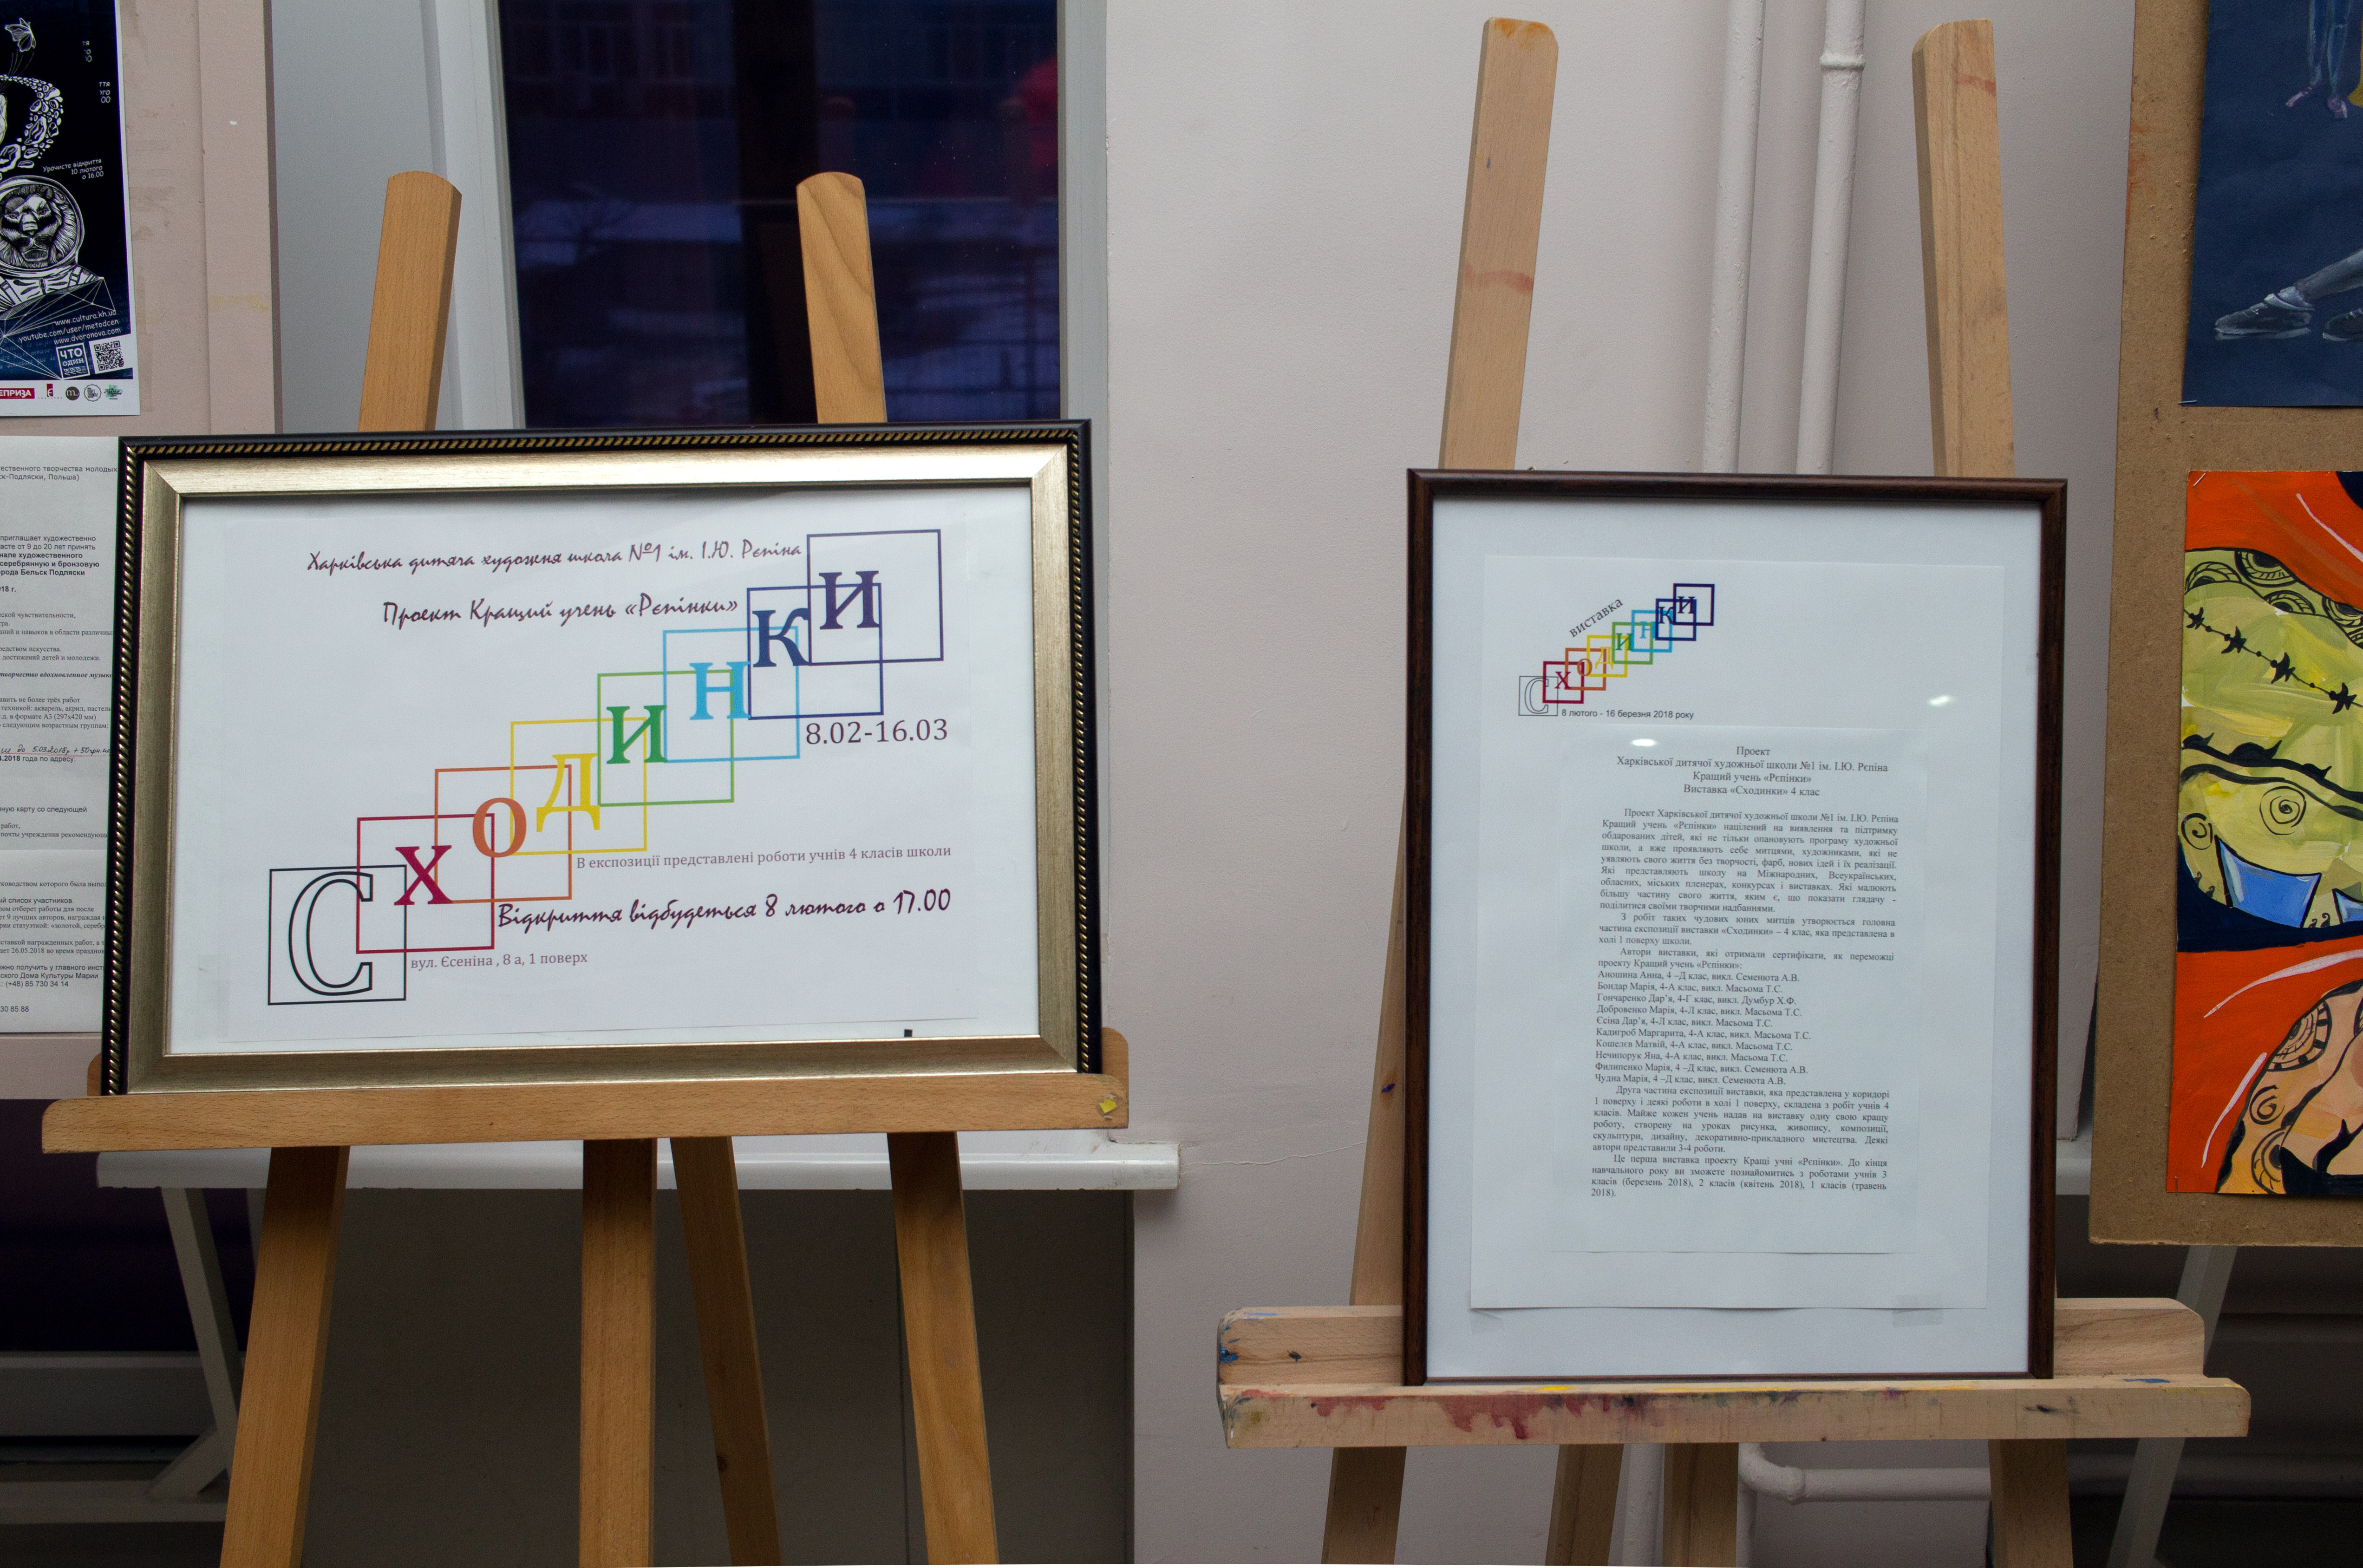 Урочисте відкриття
10 лютого
о 16.00
www.cultura.kh.ua
youtube.com/user/metodcen
www.dvoranova.com
ЧТО
ОДИН
Харківська дитяча художня школа №1 ім. І.Ю. Рєпіна
Проект Кращий учень «Рєпінки»
Сходинки
8.02-16.03
В експозиції представлені роботи учнів 4 класів школи
Відкриття відбудеться 8 лютого о 17.00
вул. Єсеніна , 8 а, 1 поверх
виставка
Сходинки
8 лютого - 16 березня 2018 року
Проект
Харківської дитячої художньої школи №1 ім. І.Ю. Рєпіна
Кращий учень «Рєпінки»
Виставка «Сходинки» 4 клас
Проект Харківської дитячої художньої школи №1 ім. І.Ю. Рєпіна
Кращий учень «Рєпінки» націлений на виявлення та підтримку
обдарованих дітей, які не тільки опановують програму художньої
школи, а вже проявляють себе митцями, художниками, які не
уявляють свого життя без творчості, фарб, нових ідей і їх реалізації.
Які представляють школу на Міжнародних, Всеукраїнських,
обласних, міських пленерах, конкурсах і виставках. Які малюють
більшу частину свого життя, яким є, що показати глядачу -
поділитися своїми творчими надбаннями.
З робіт таких чудових юних митців утворюється головна
частина експозиції виставки «Сходинки» – 4 клас, яка представлена в
холі 1 поверху школи.
Автори виставки, які отримали сертифікати, як переможці
проекту Кращий учень «Рєпінки»:
Аношина Анна, 4 –Д клас, викл. Семенюта А.В.
Бондар Марія, 4-А клас, викл. Масьома Т.С.
Гончаренко Дар’я, 4-Г клас, викл. Думбур Х.Ф.
Добровенко Марія, 4-Л клас, викл. Масьома Т.С.
Єсіна Дар’я, 4-Л клас, викл. Масьома Т.С.
Кадигроб Маргарита, 4-А клас, викл. Масьома Т.С.
Кошелєв Матвій, 4-А клас, викл. Масьома Т.С.
Нечипорук Яна, 4-А клас, викл. Масьома Т.С.
Филипенко Марія, 4 –Д клас, викл. Семенюта А.В.
Чудна Марія, 4 –Д клас, викл. Семенюта А.В.
Друга частина експозиції виставки, яка представлена у коридорі
1 поверху і деякі роботи в холі 1 поверху, складена з робіт учнів 4
класів. Майже кожен учень надав на виставку одну свою кращу
роботу, створену на уроках рисунка, живопису, композиції,
скульптури, дизайну, декоративно-прикладного мистецтва. Деякі
автори представили 3-4 роботи.
Це перша виставка проекту Кращі учні «Рєпінки». До кінця
навчального року ви зможете познайомитись з роботами учнів 3
класів (березень 2018), 2 класів (квітень 2018), 1 класів (травень
2018).